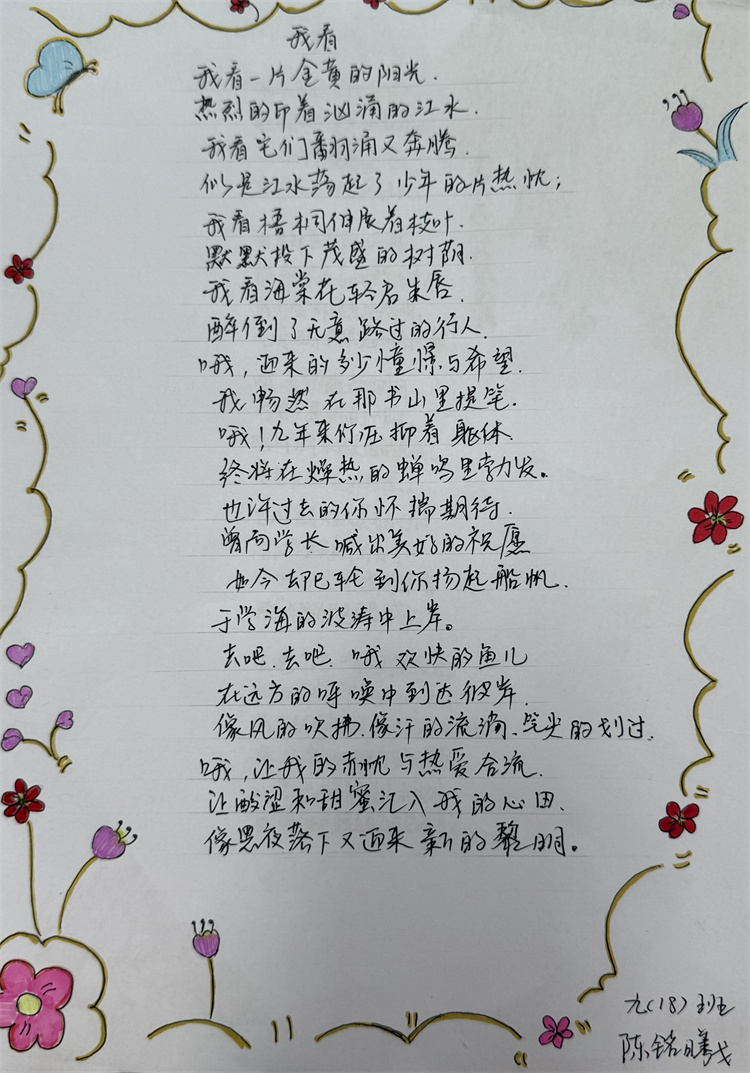 我看
我看一片金黄的阳光.
热烈的印着汹涌的江水.
我看它们翻涌又奔腾.
似是江水荡起了少年的片热忱;
我看梧桐伸展着枝叶.
默默投下茂盛的树荫.
我看海棠花轻启朱唇.
醉倒了无意路过的行人.
哦,迎来的多少憧憬与希望.
我畅然在那书山里提笔.
哦!九年来你压抑着躯体.
终将在燥热的蝉鸣里勃发。
也许过去的你怀揣期待.
曾向学长喊出美好的祝愿
如今却已轮到你扬起船帆.
于学海的波涛中上岸。
去吧.去吧.哦欢快的鱼儿
在远方的呼唤中到达彼岸.
像风的吹拂.像汗的流淌.笔尖的划过.
哦,让我的赤忱与热爱合流.
让酸涩和甜蜜汇入我的心田.
像黑夜落下又迎来新的黎明。
九(18)班
陈铭曦